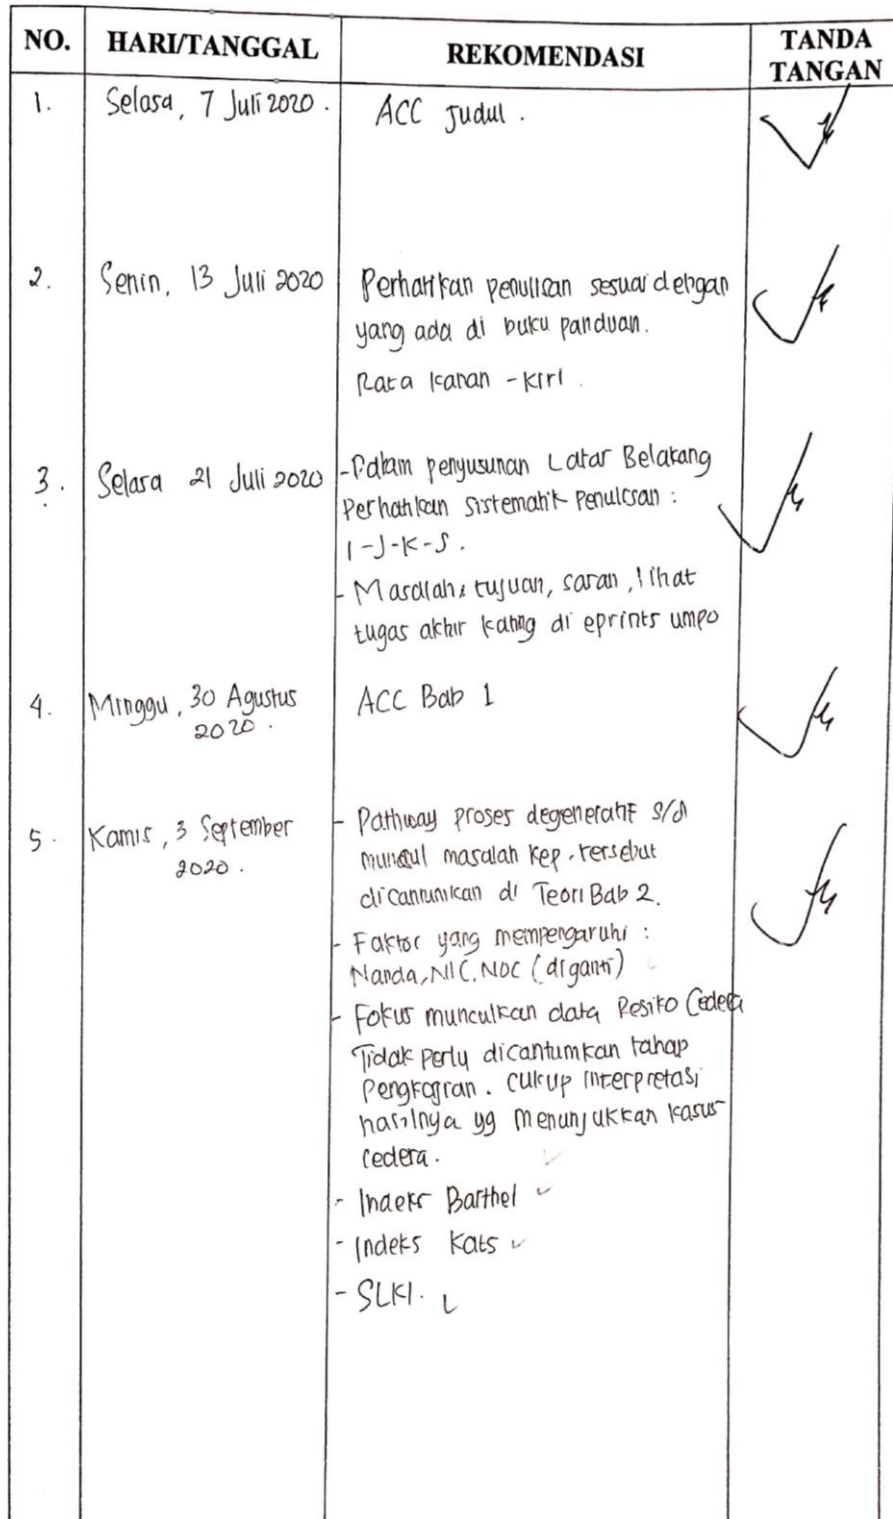 NO. HARI/TANGGAL REKOMENDASI TANDA TANGAN
1. Selasa, 7 Juli 2020. ACC Judul.
2. Senin, 13 Juli 2020 Perhatikan penulisan sesuai dengan
yang ada di buku panduan.
Rata kanan - kiri.
3. Selasa 21 Juli 2020 - Dalam penyusunan Latar Belakang
Perhatikan Sistematik Penulisan :
I-J-K-S.
- Masalah, tujuan, saran, lihat
tugas akhir kating di eprints umpo
4. Minggu, 30 Agustus
2020.
ACC Bab 1
5. Kamis, 3 September
2020.
- Pathway proses degeneratif s/d
muncul masalah kep. tersebut
dicantumkan di Teori Bab 2.
- Faktor yang mempengaruhi :
Nanda, NIC, NOC (diganti)
- Fokus munculkan data Resiko Cedera
Tidak perlu dicantumkan tahap
Pengkajian. Cukup interpretasi
hasilnya yg menunjukkan kasus
cedera.
- Indeks Barthel
- Indeks Kats
- SLKI.